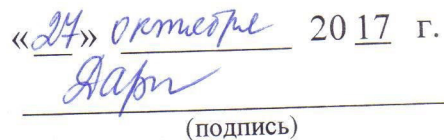 «27» октября 2017 г.
(подпись)